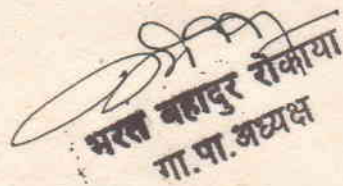 भरत बहादुर रोकाया
गा.पा.अध्यक्ष